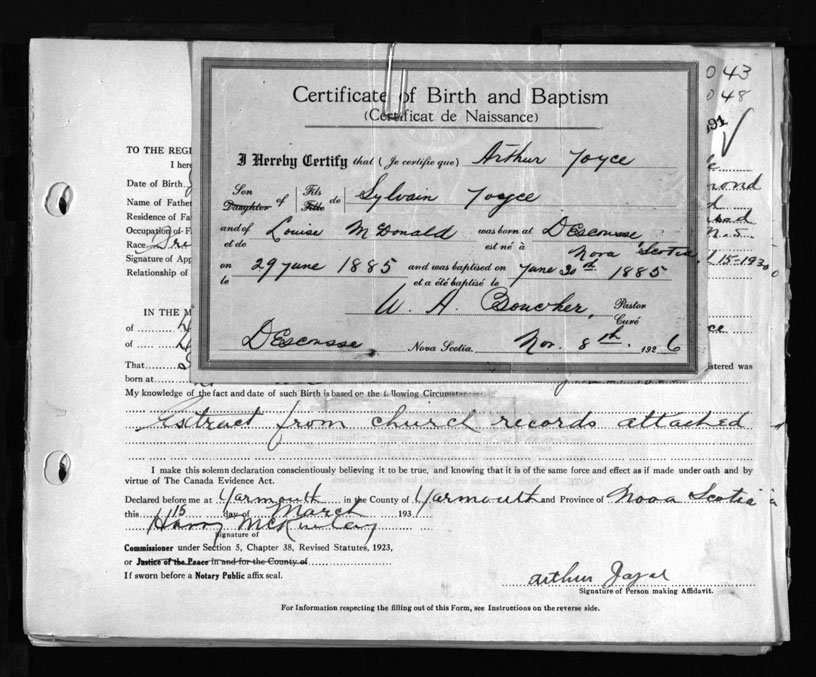 043
048
291
Certificate of Birth and Baptism
(Certificat de Naissance)
TO THE REGI
I here
I Hereby Certify that (Je certifie que) Arthur Joyce
Date of Birth
mond
Son Daughter of Fils Fille de Sylvain Joyce
Name of Father
Residence of Fa
and of Louise McDonald was born at DEscousse
et de est né à Nova Scotia
Occupation of F
N.S.
Race
Signature of App
15-1930
on 29 June 1885 and was baptised on June 30th 1885
le et a été baptisé le
Relationship of
W. A. Boucher, Pastor
Curé
IN THE M
of
of
DEscousse Nova Scotia, Nov. 8th. 1926
That
istered was
born at
My knowledge of the fact and date of such Birth is based on the following Circumstances
Extract from church records attached
I make this solemn declaration conscientiously believing it to be true, and knowing that it is of the same force and effect as if made under oath and by
virtue of The Canada Evidence Act.
Declared before me at Yarmouth in the County of Yarmouth and Province of Nova Scotia
this 15 day of March 193
Harry McKinley
Signature of
Commissioner under Section 5, Chapter 38, Revised Statutes, 1923,
or Justice of the Peace in and for the County of
If sworn before a Notary Public affix seal.
Arthur Joyce
Signature of Person making Affidavit.
For Information respecting the filling out of this Form, see Instructions on the reverse side.